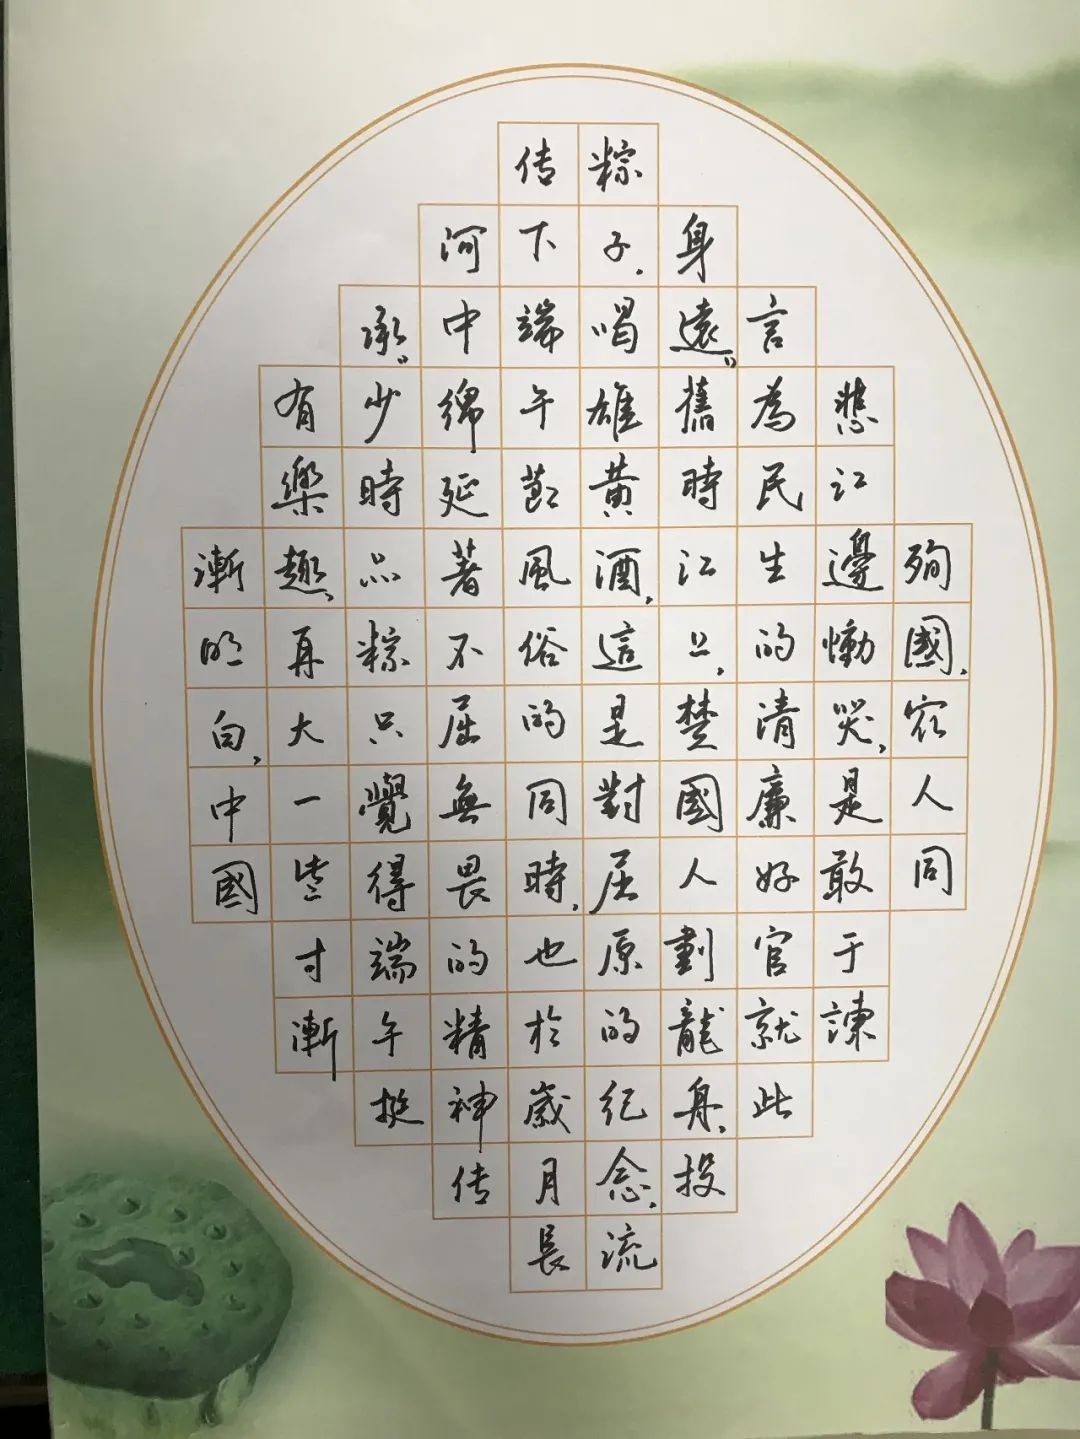 殉國，众人同
悲江邊慟哭，是敢于諫
言為民生的清廉好官就此
身遠。舊時江上，楚國人劃龍舟，投
粽子，喝雄黃酒，這是對屈原的紀念，流
传下端午節風俗的同時，也於歲月長
河中綿延著不屈無畏的精神传
承。少時品粽只覺得端午挺
有樂趣，再大一些才漸
漸明白，中國